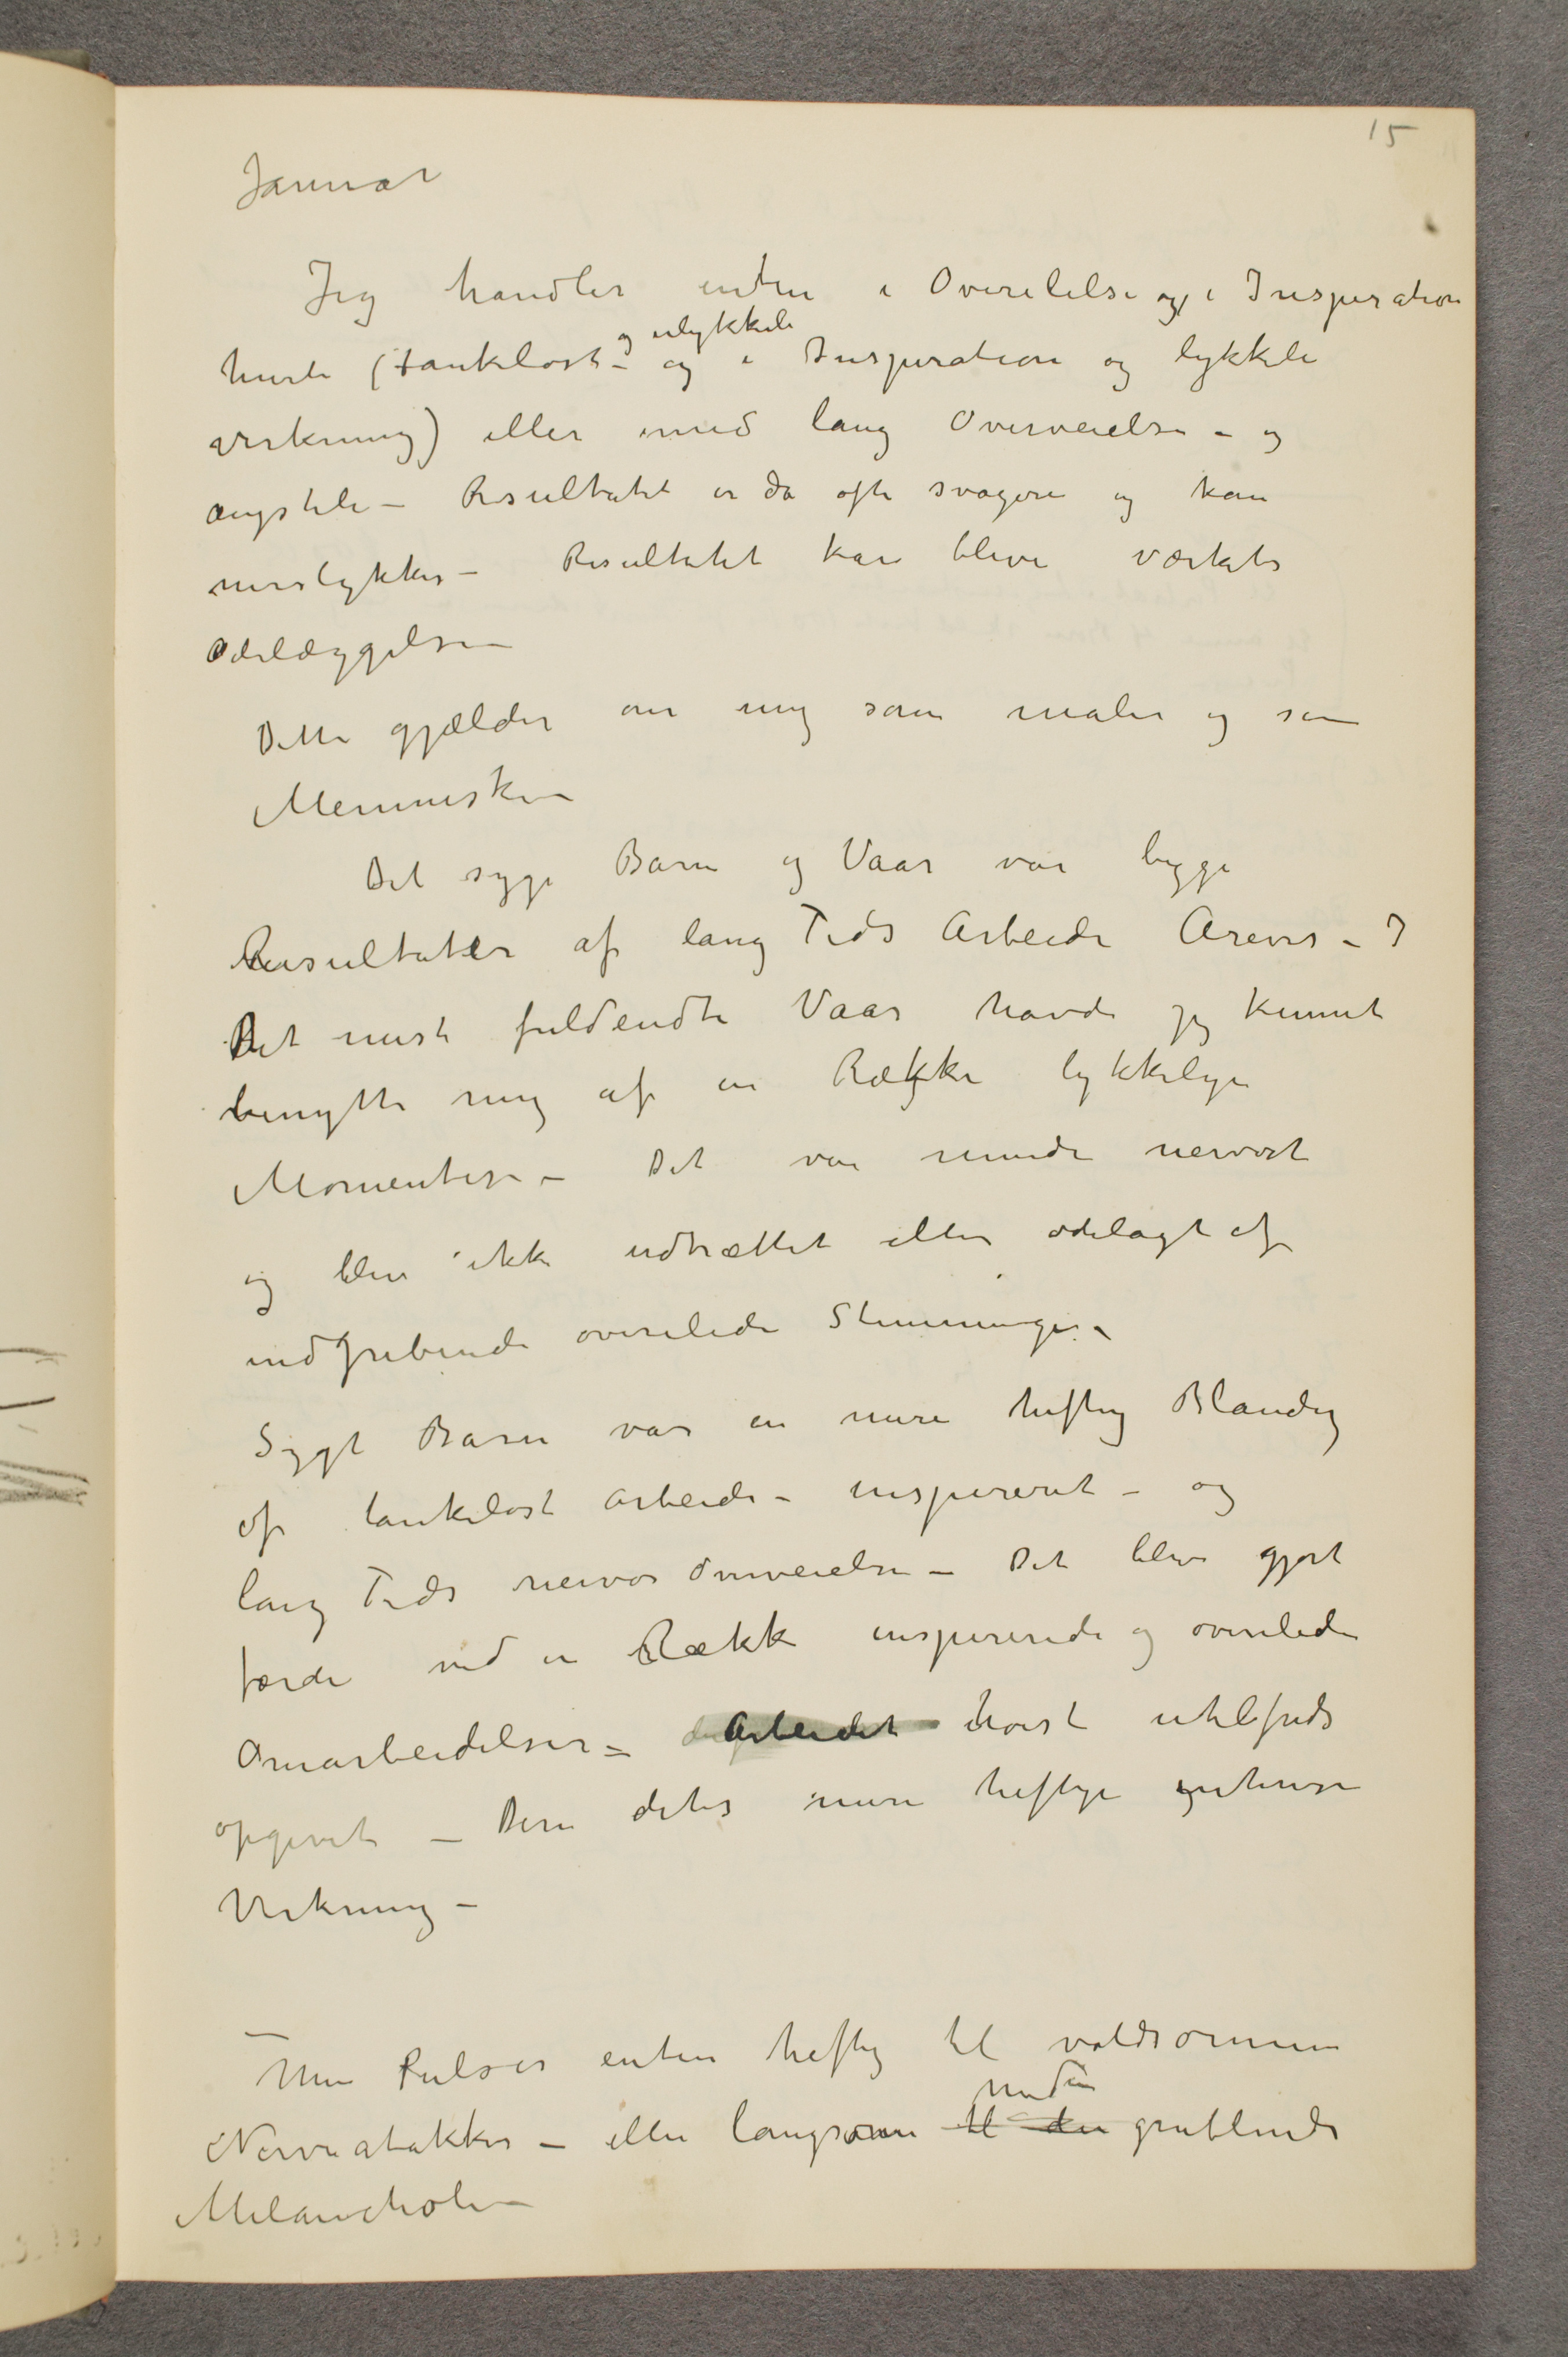 15
Januar
Jeg handler enten i Overilelse og i Inspiration
og ulykkeli
hurti (tankeløst – og i Inspiration og lykkeli
virkning) eller med lang Overveielse – og
ængsteli – Resultatet er da ofte svagere og kan
mislykkes – Resultatet kan blive værkets
Ødelæggelse –
Dette gjælder om mig som maler og som
Menneske –
Det syge Barn og Vaar var begge
Resultater af lang Tids Arbeide Årevis – I
Det mest fuldendte Vaar havde jeg kunnet
benytte mig af en Række lykkelige
Momenter – Det var mindre nervøst
og blev ikke udtrættet eller ødelagt af
indgribende overilede Stemninger –
Sygt Barn var en mere heftig Blanding
af tankeløst arbeide – inspireret – og
lang Tids nervøs Overveielse – Det blev gjort
færdi ved en Række inspirerede og overilede
Omarbeidelser – Arbeidet høist utilfreds
opgivet – Deraf dets mere heftige intense
Virkning –
Min Puls er enten heftig til voldsomme
med en
Nerveatakker – eller langsom til den grublende
Melancholi –